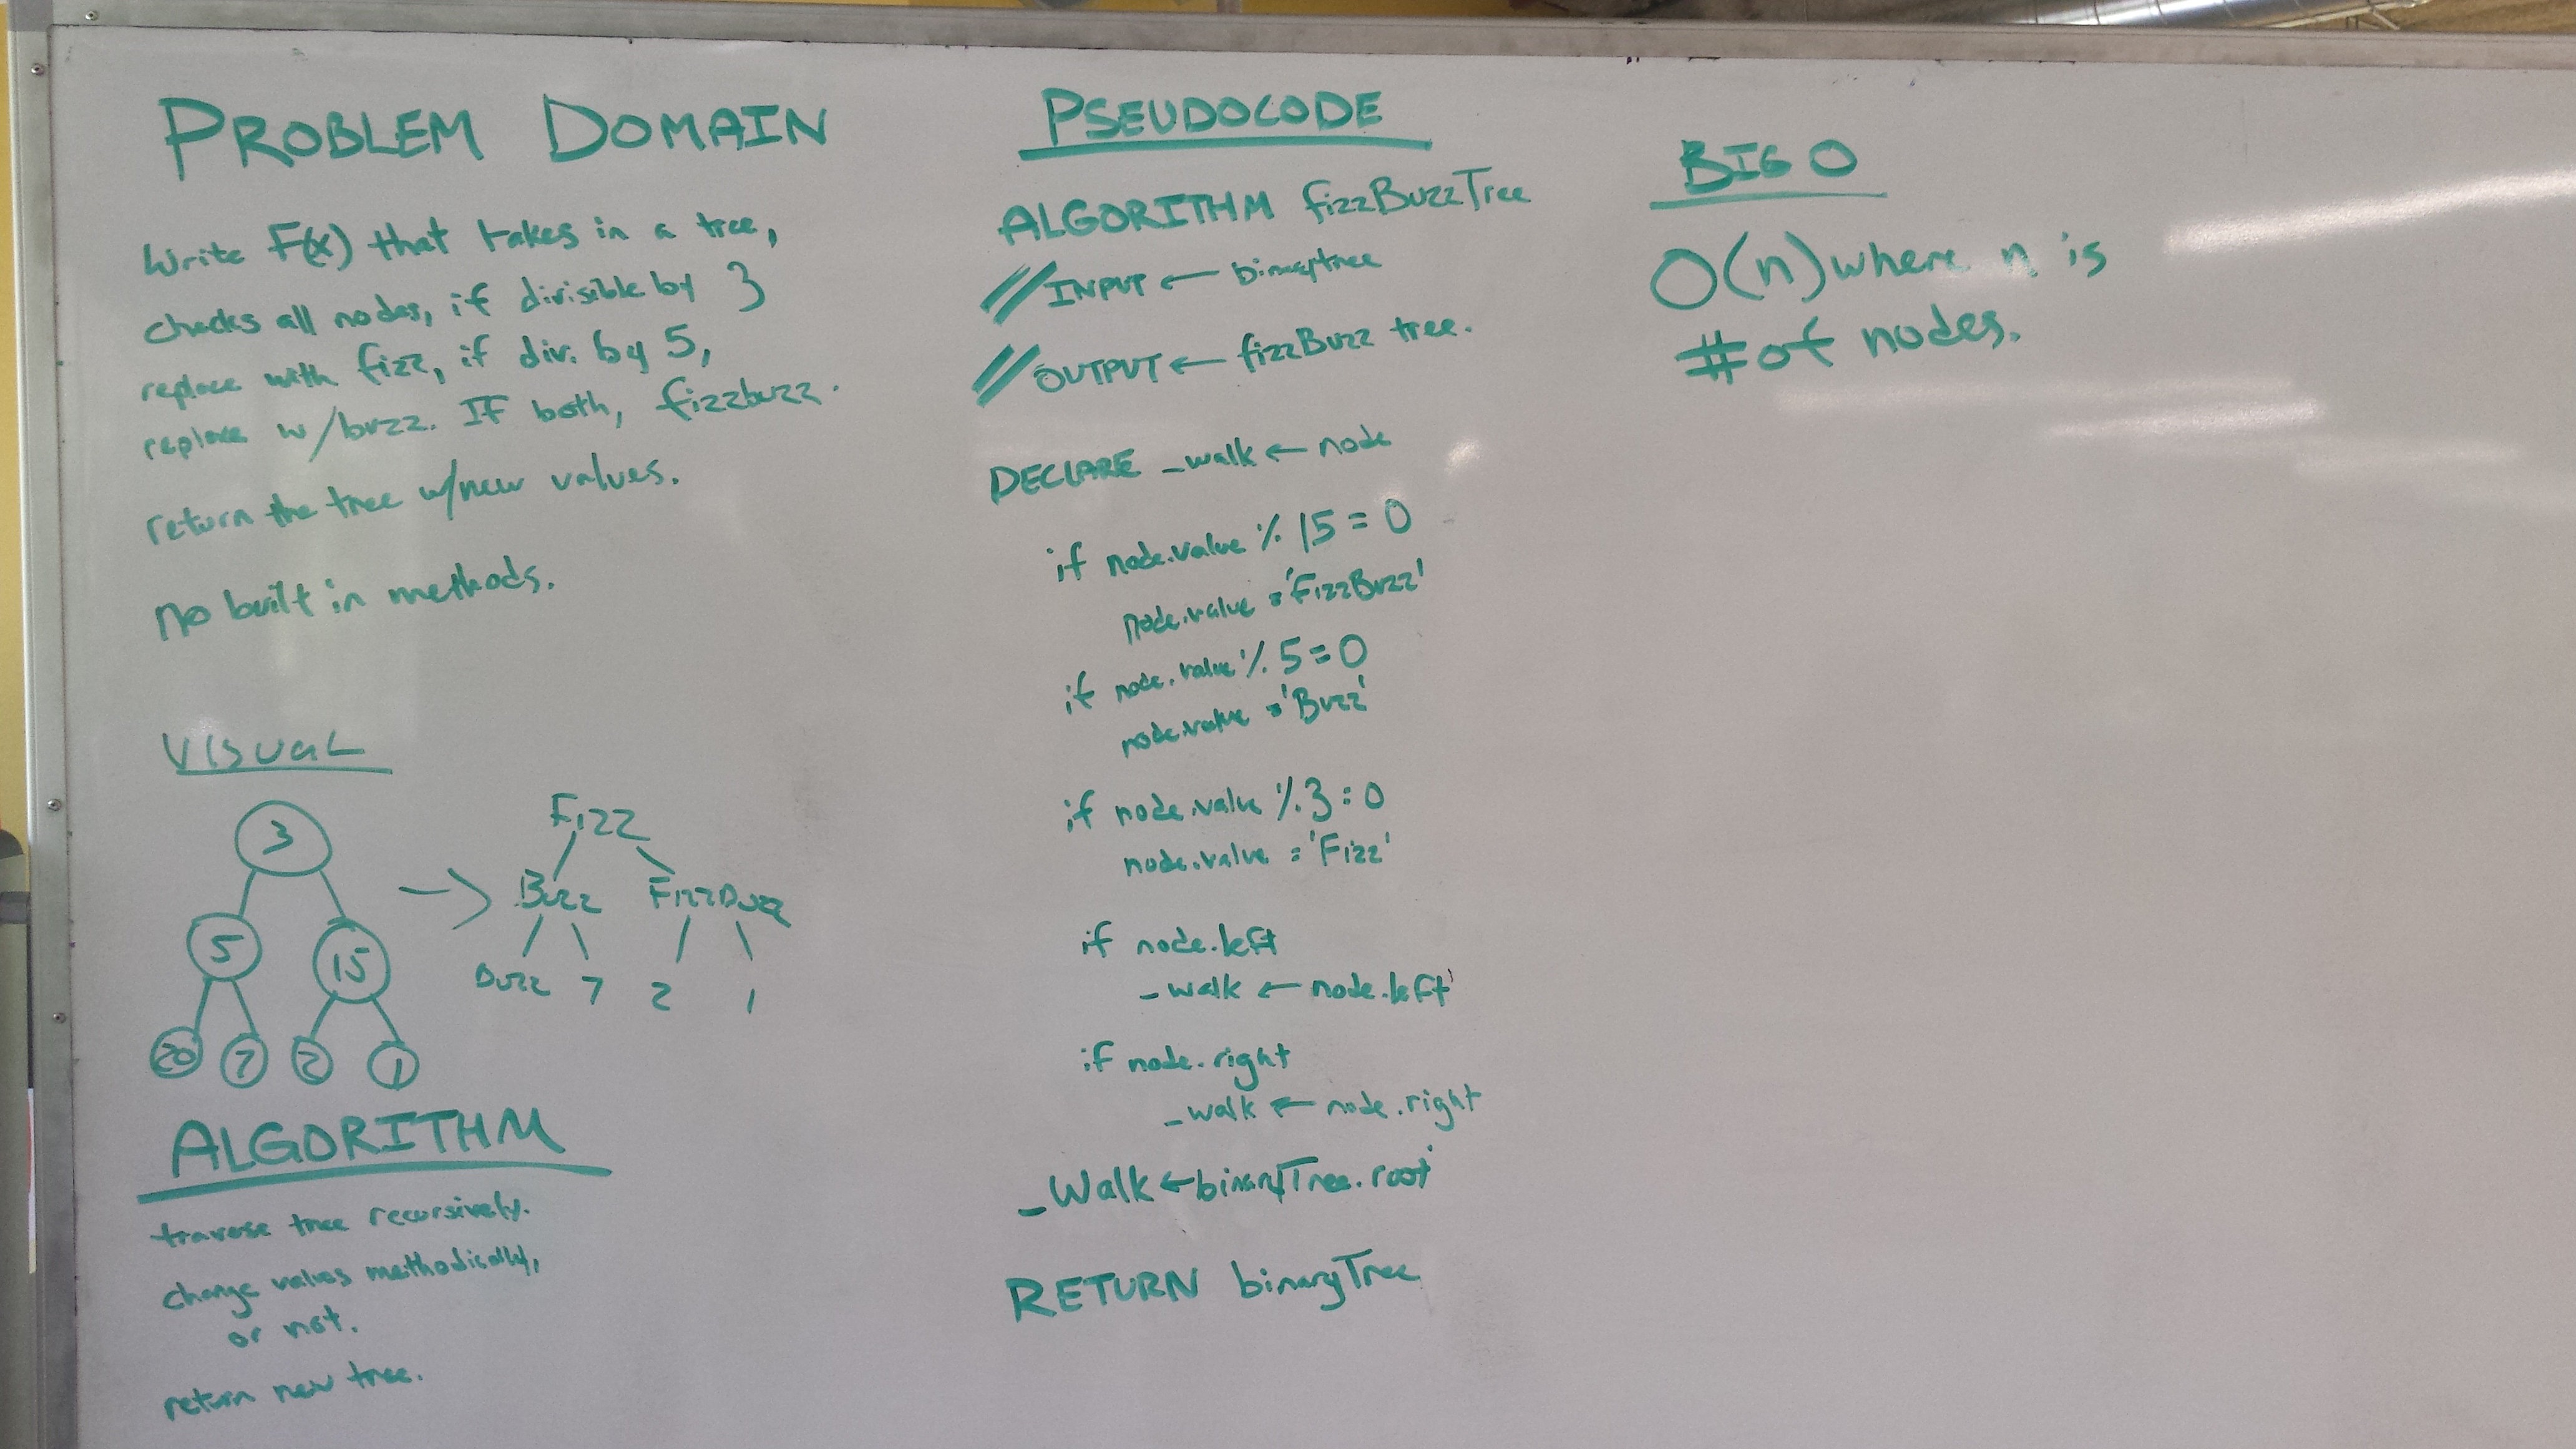 PROBLEM DOMAIN
Write F(x) that takes in a tree,
checks all nodes, if divisible by 3
replace with fizz, if div. by 5,
replace w/buzz. IF both, fizzbuzz.
return the tree w/new values.
no built in methods.
VISUAL
3
5 15
20 7 2 1
→
Fizz
Buzz FizzBuzz
Buzz 7 2 1
ALGORITHM
traverse tree recursively.
change values methodically,
or not.
return new tree.
PSEUDOCODE
ALGORITHM fizzBuzzTree
// INPUT ← binarytree
// OUTPUT ← fizzBuzz tree.
DECLARE _walk ← node
if node.value % 15 = 0
node.value = 'FizzBuzz'
if node.value % 5 = 0
node.value = 'Buzz'
if node.value % 3 = 0
node.value = 'Fizz'
if node.left
_walk ← node.left
if node.right
_walk ← node.right
_Walk ← binaryTree.root
RETURN binaryTree
BIG O
O(n) where n is
# of nodes.